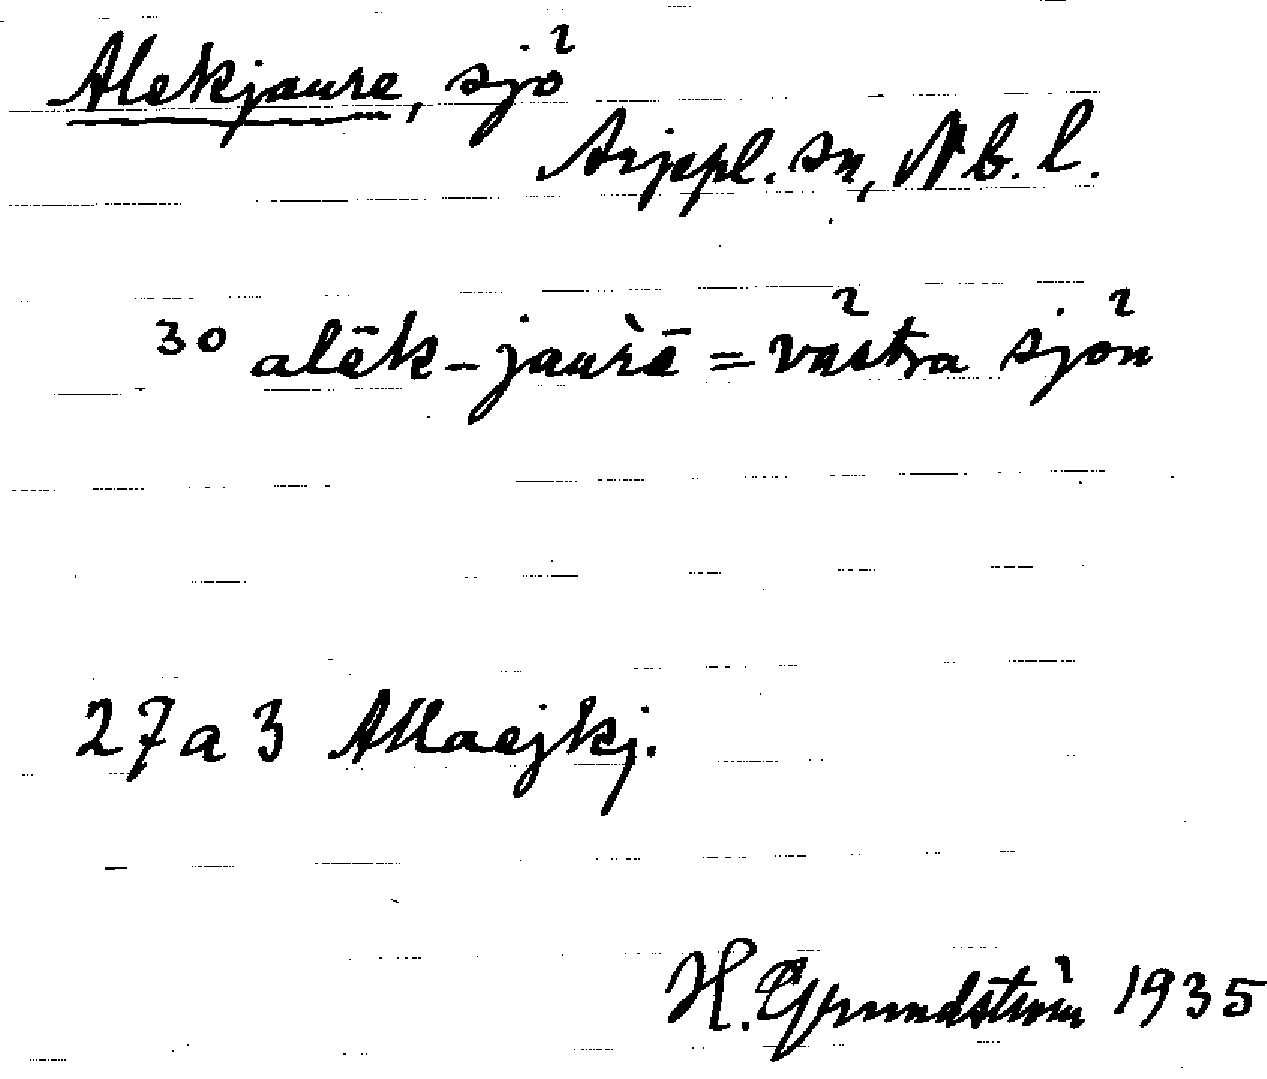 Alekjaure, sjö
Arjepl. sn, Nb. l.
30 alēk-jaùrē = västra sjön
27 a 3 Allaejkj.
H. Grundström 1935